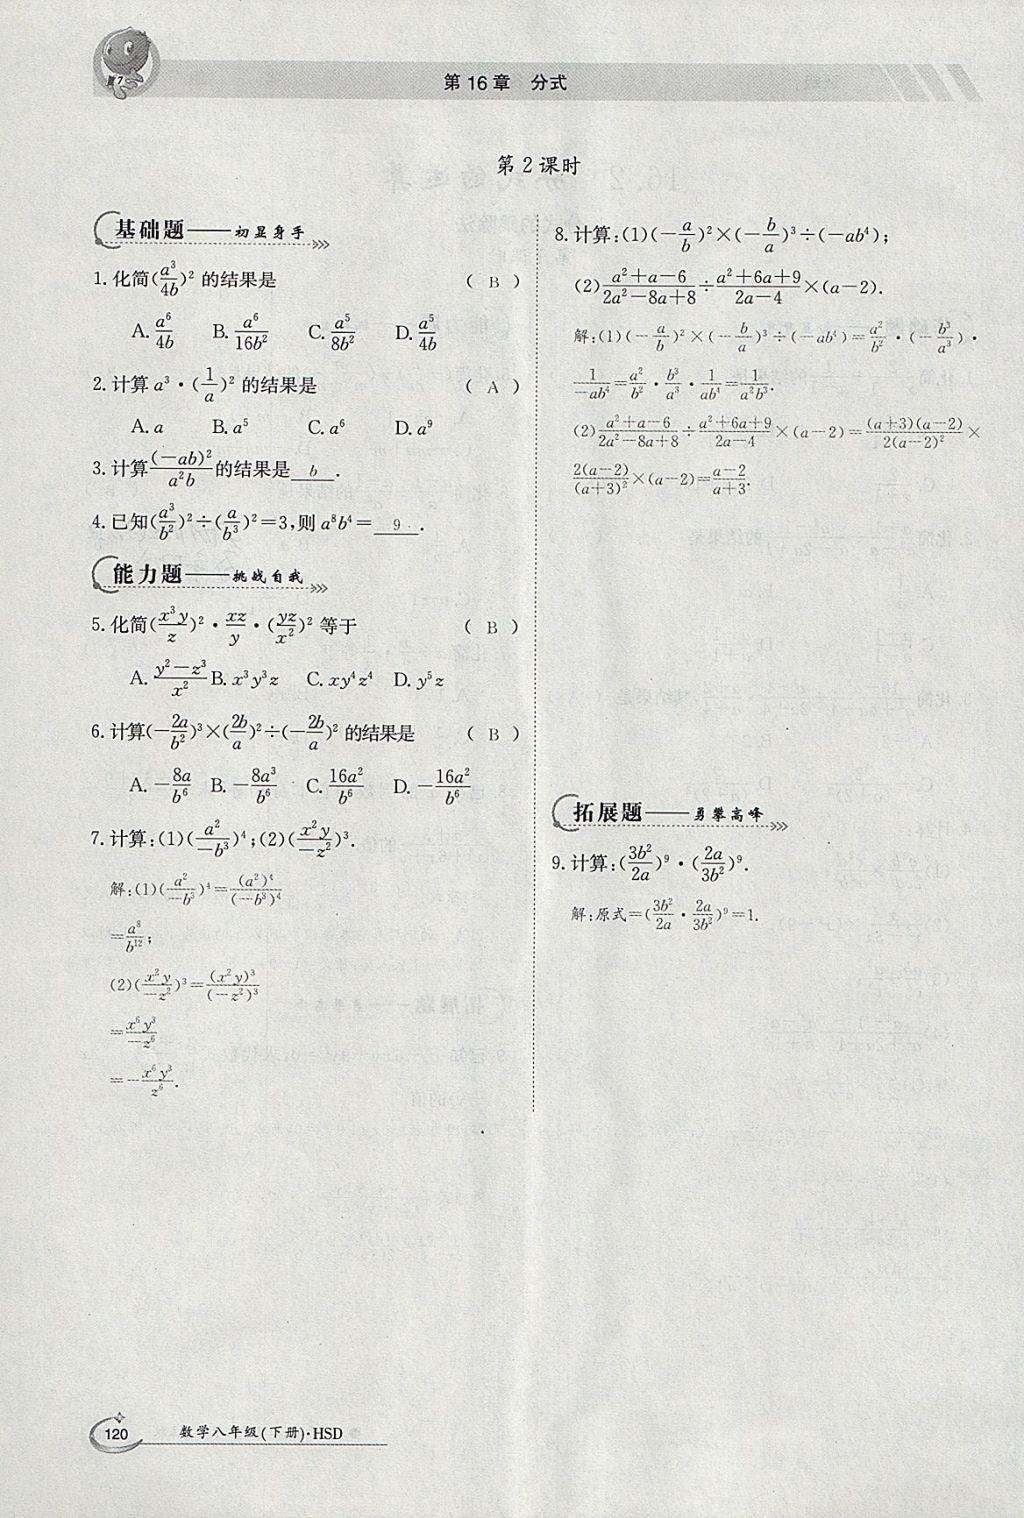 第16章 分式
第2课时
基础题——初显身手
1.化简(a³/4b)² 的结果是 ( B )
A. a⁶/4b B. a⁶/16b² C. a⁵/8b² D. a⁵/4b
2.计算 a³·(1/a)² 的结果是 ( A )
A. a B. a⁵ C. a⁶ D. a⁹
3.计算(-ab)²/a²b 的结果是 b .
4.已知(a³/b²)²÷(a/b³)²=3,则 a⁸b⁴= 9 .
能力题——挑战自我
5.化简(x³y/z)²·xz/y·(yz/x²)² 等于 ( B )
A. y²-z³/x² B. x³y³z C. xy⁴z⁴ D. y⁵z
6.计算(-2a/b²)³×(2b/a)²÷(-2b/a)² 的结果是 ( B )
A. -8a/b⁶ B. -8a³/b⁶ C. 16a²/b⁶ D. -16a²/b⁶
7.计算:(1)(a²/-b³)⁴;(2)(x²y/-z²)³.
解:(1)(a²/-b³)⁴=(a²)⁴/(-b³)⁴
=a⁸/b¹²;
(2)(x²y/-z²)³=(x²y)³/(-z²)³
=x⁶y³/-z⁶
=-x⁶y³/z⁶.
8.计算:(1)(-a/b)²×(-b/a)³÷(-ab⁴);
(2)a²+a-6/2a²-8a+8÷a²+6a+9/2a-4×(a-2).
解:(1)(-a/b)²×(-b/a)³÷(-ab⁴)=a²/b²·(-b³/a³)·
1/-ab⁴=a²/b²·b³/a³·1/ab⁴=1/a²b³.
(2)a²+a-6/2a²-8a+8÷a²+6a+9/2a-4×(a-2)=(a+3)(a-2)/2(a-2)²×
2(a-2)/(a+3)²×(a-2)=a-2/a+3.
拓展题——勇攀高峰
9.计算:(3b²/2a)⁹·(2a/3b²)⁹.
解:原式=(3b²/2a·2a/3b²)⁹=1.
120 数学八年级(下册)·HSD